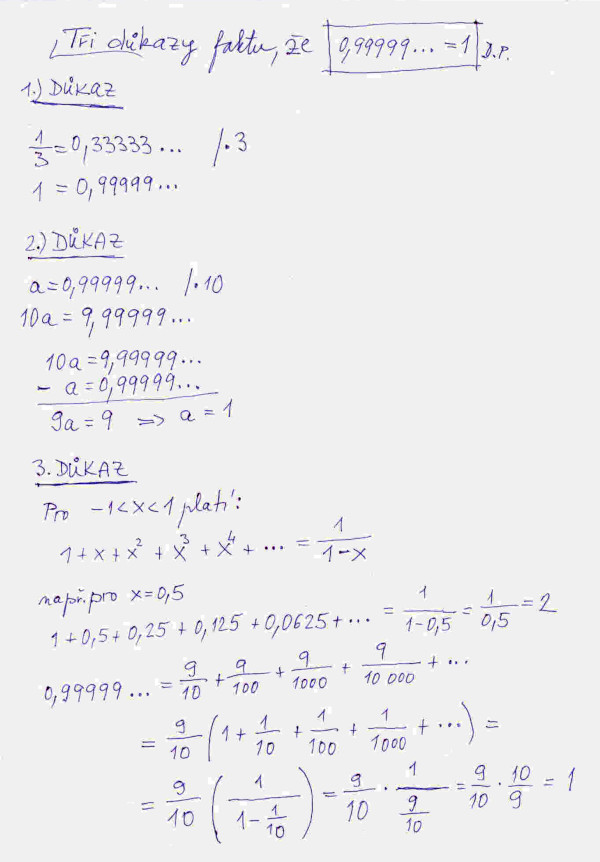 Tři důkazy faktu, že 0,99999... = 1 D.P.
1.) DŮKAZ
1/3 = 0,33333... /·3
1 = 0,99999...
2.) DŮKAZ
a = 0,99999... /·10
10a = 9,99999...
10a = 9,99999...
- a = 0,99999...
9a = 9 => a = 1
3. DŮKAZ
Pro -1 < x < 1 platí:
1 + x + x² + x³ + x⁴ + ... = 1/(1-x)
např. pro x = 0,5
1 + 0,5 + 0,25 + 0,125 + 0,0625 + ... = 1/(1-0,5) = 1/0,5 = 2
0,99999... = 9/10 + 9/100 + 9/1000 + 9/10 000 + ...
= 9/10 (1 + 1/10 + 1/100 + 1/1000 + ...) =
= 9/10 (1/(1 - 1/10)) = 9/10 · 1/(9/10) = 9/10 · 10/9 = 1